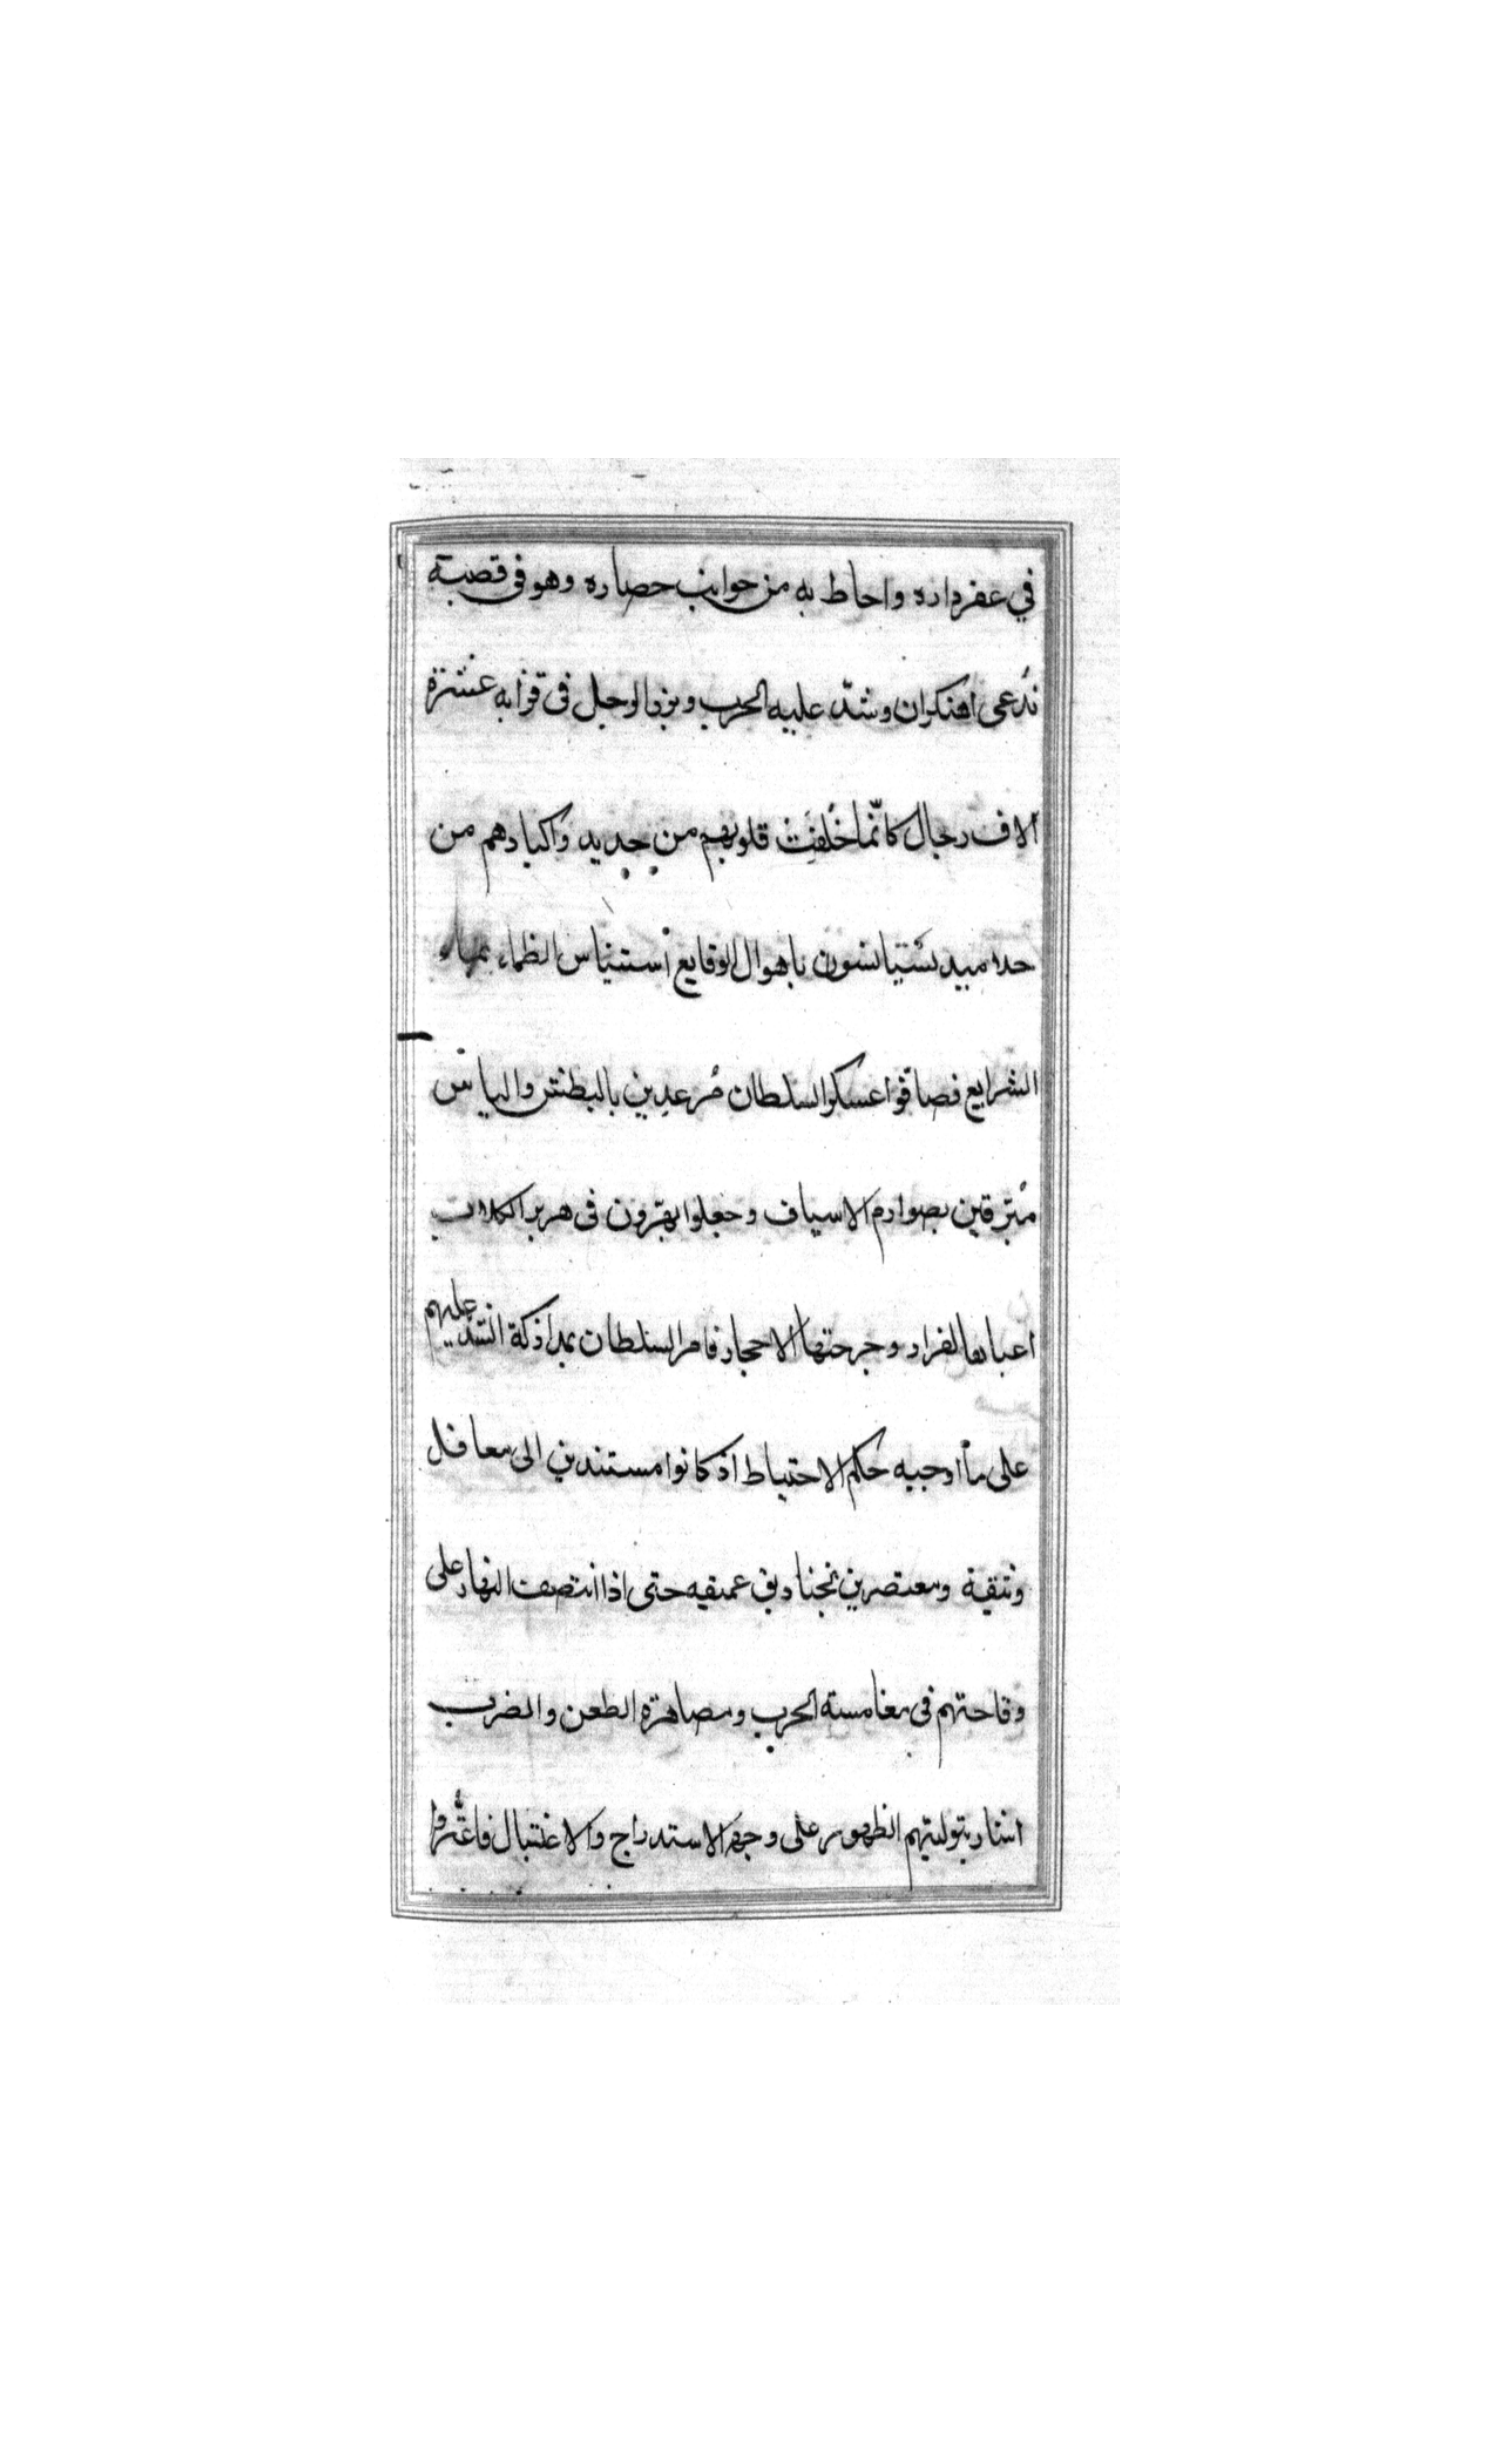 في عقر داره واحاط به من جوانب حصاره وهو فى قصبة
تدعى اهنكران وشدّ عليه الحرب وبزف الوجل فى قرابه عشرة
الاف رجال كانّما خُلقت قلوبهم من حديد واكبادهم من
جلاميد يستيانسون باهوال الوقايع أستيناس الظماء بماء
الشرايع فصافّوا عسكر السلطان مُرعدين بالبطش والباس
مُبرقين بصوارم الاسياف وجعلوا يهرّون فى هرير الكلاب
اعياها الفرار وجرحتها الاحجار فامر السلطان بمداركة الشدّ عليهم
على ما اوجبه حكم الاحتياط اذ كانوا مستندين الى معاقل
وثيقة ومعتصرين بخناديق عميقه حتى اذا انتصف النهار على
وقاحتهم فى مغامسة الحرب ومصاهرة الطعن والضرب
اشار بتوليتهم الظهور على وجه الاستدراج والاغتيال فاغتّروا